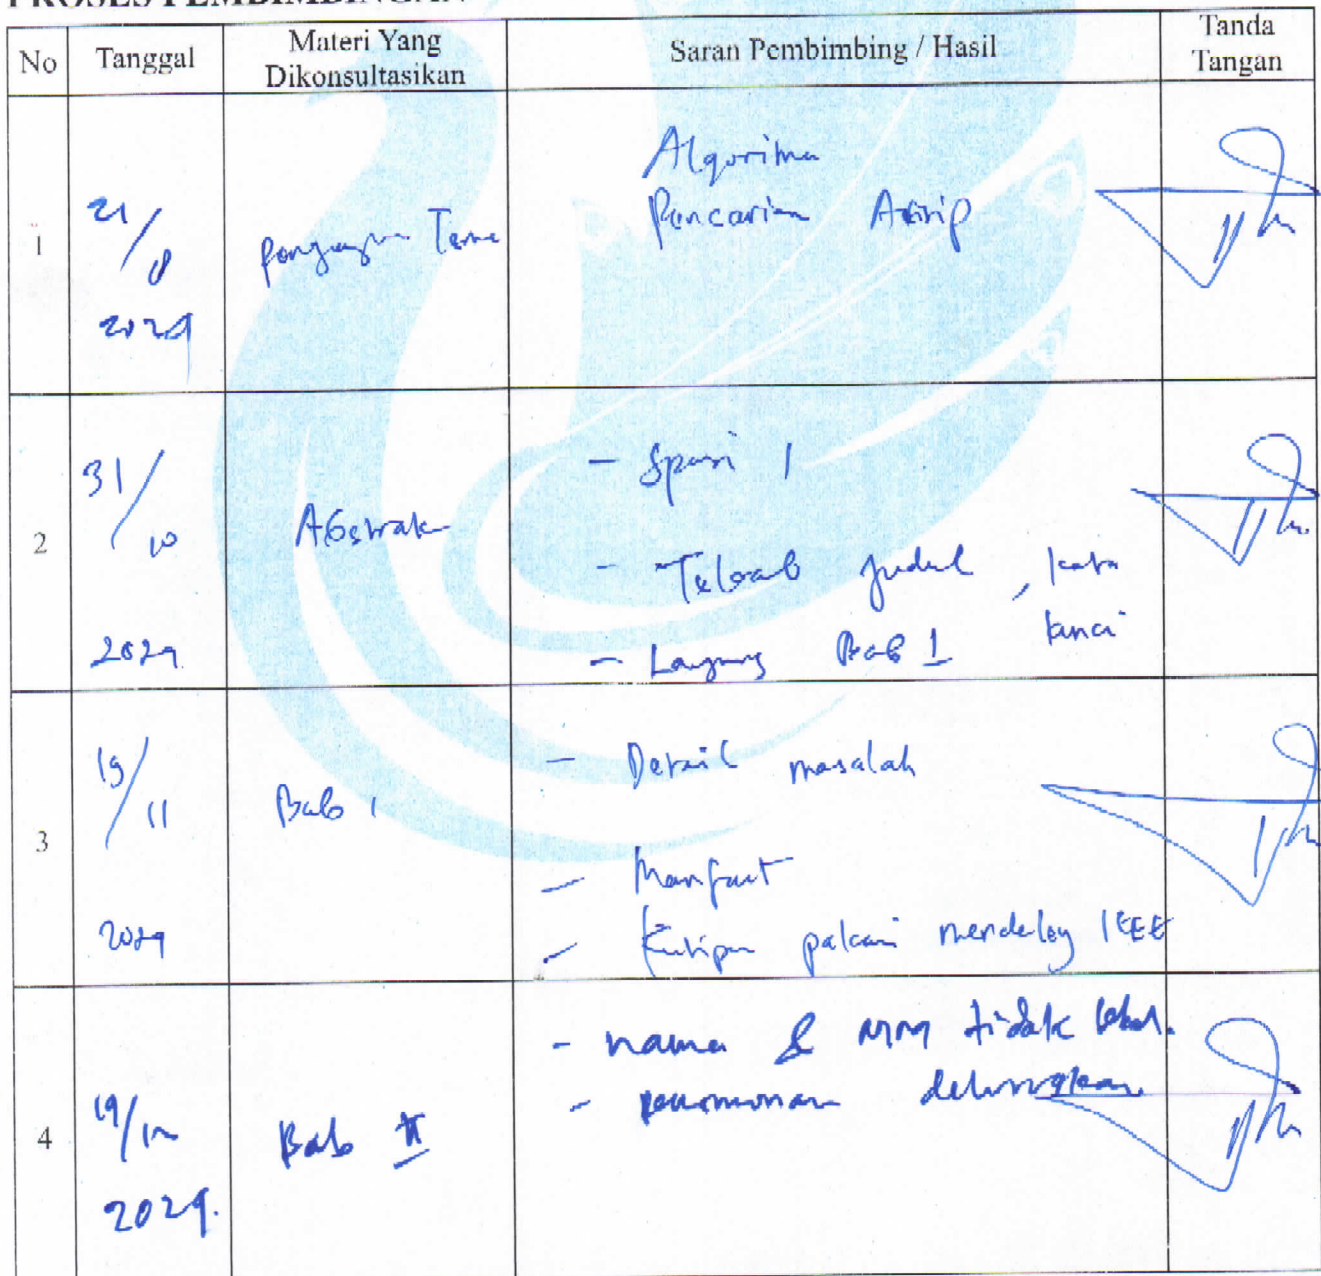 PROSES PEMBIMBINGAN
No Tanggal Materi Yang Dikonsultasikan Saran Pembimbing / Hasil Tanda Tangan
1
21/8
2024
Tema
Algoritma
Pencarian Arsip
2
31/10
2024
Abstrak
- Spasi 1
- judul, kata
kunci
- Langsung Bab 1
3
19/11
2024
Bab 1
- Detail masalah
- Manfaat
- Kutipan pakai mendeley IEEE
4
19/12
2024.
Bab II
- nama & NIM tidak tebal.
- penomoran